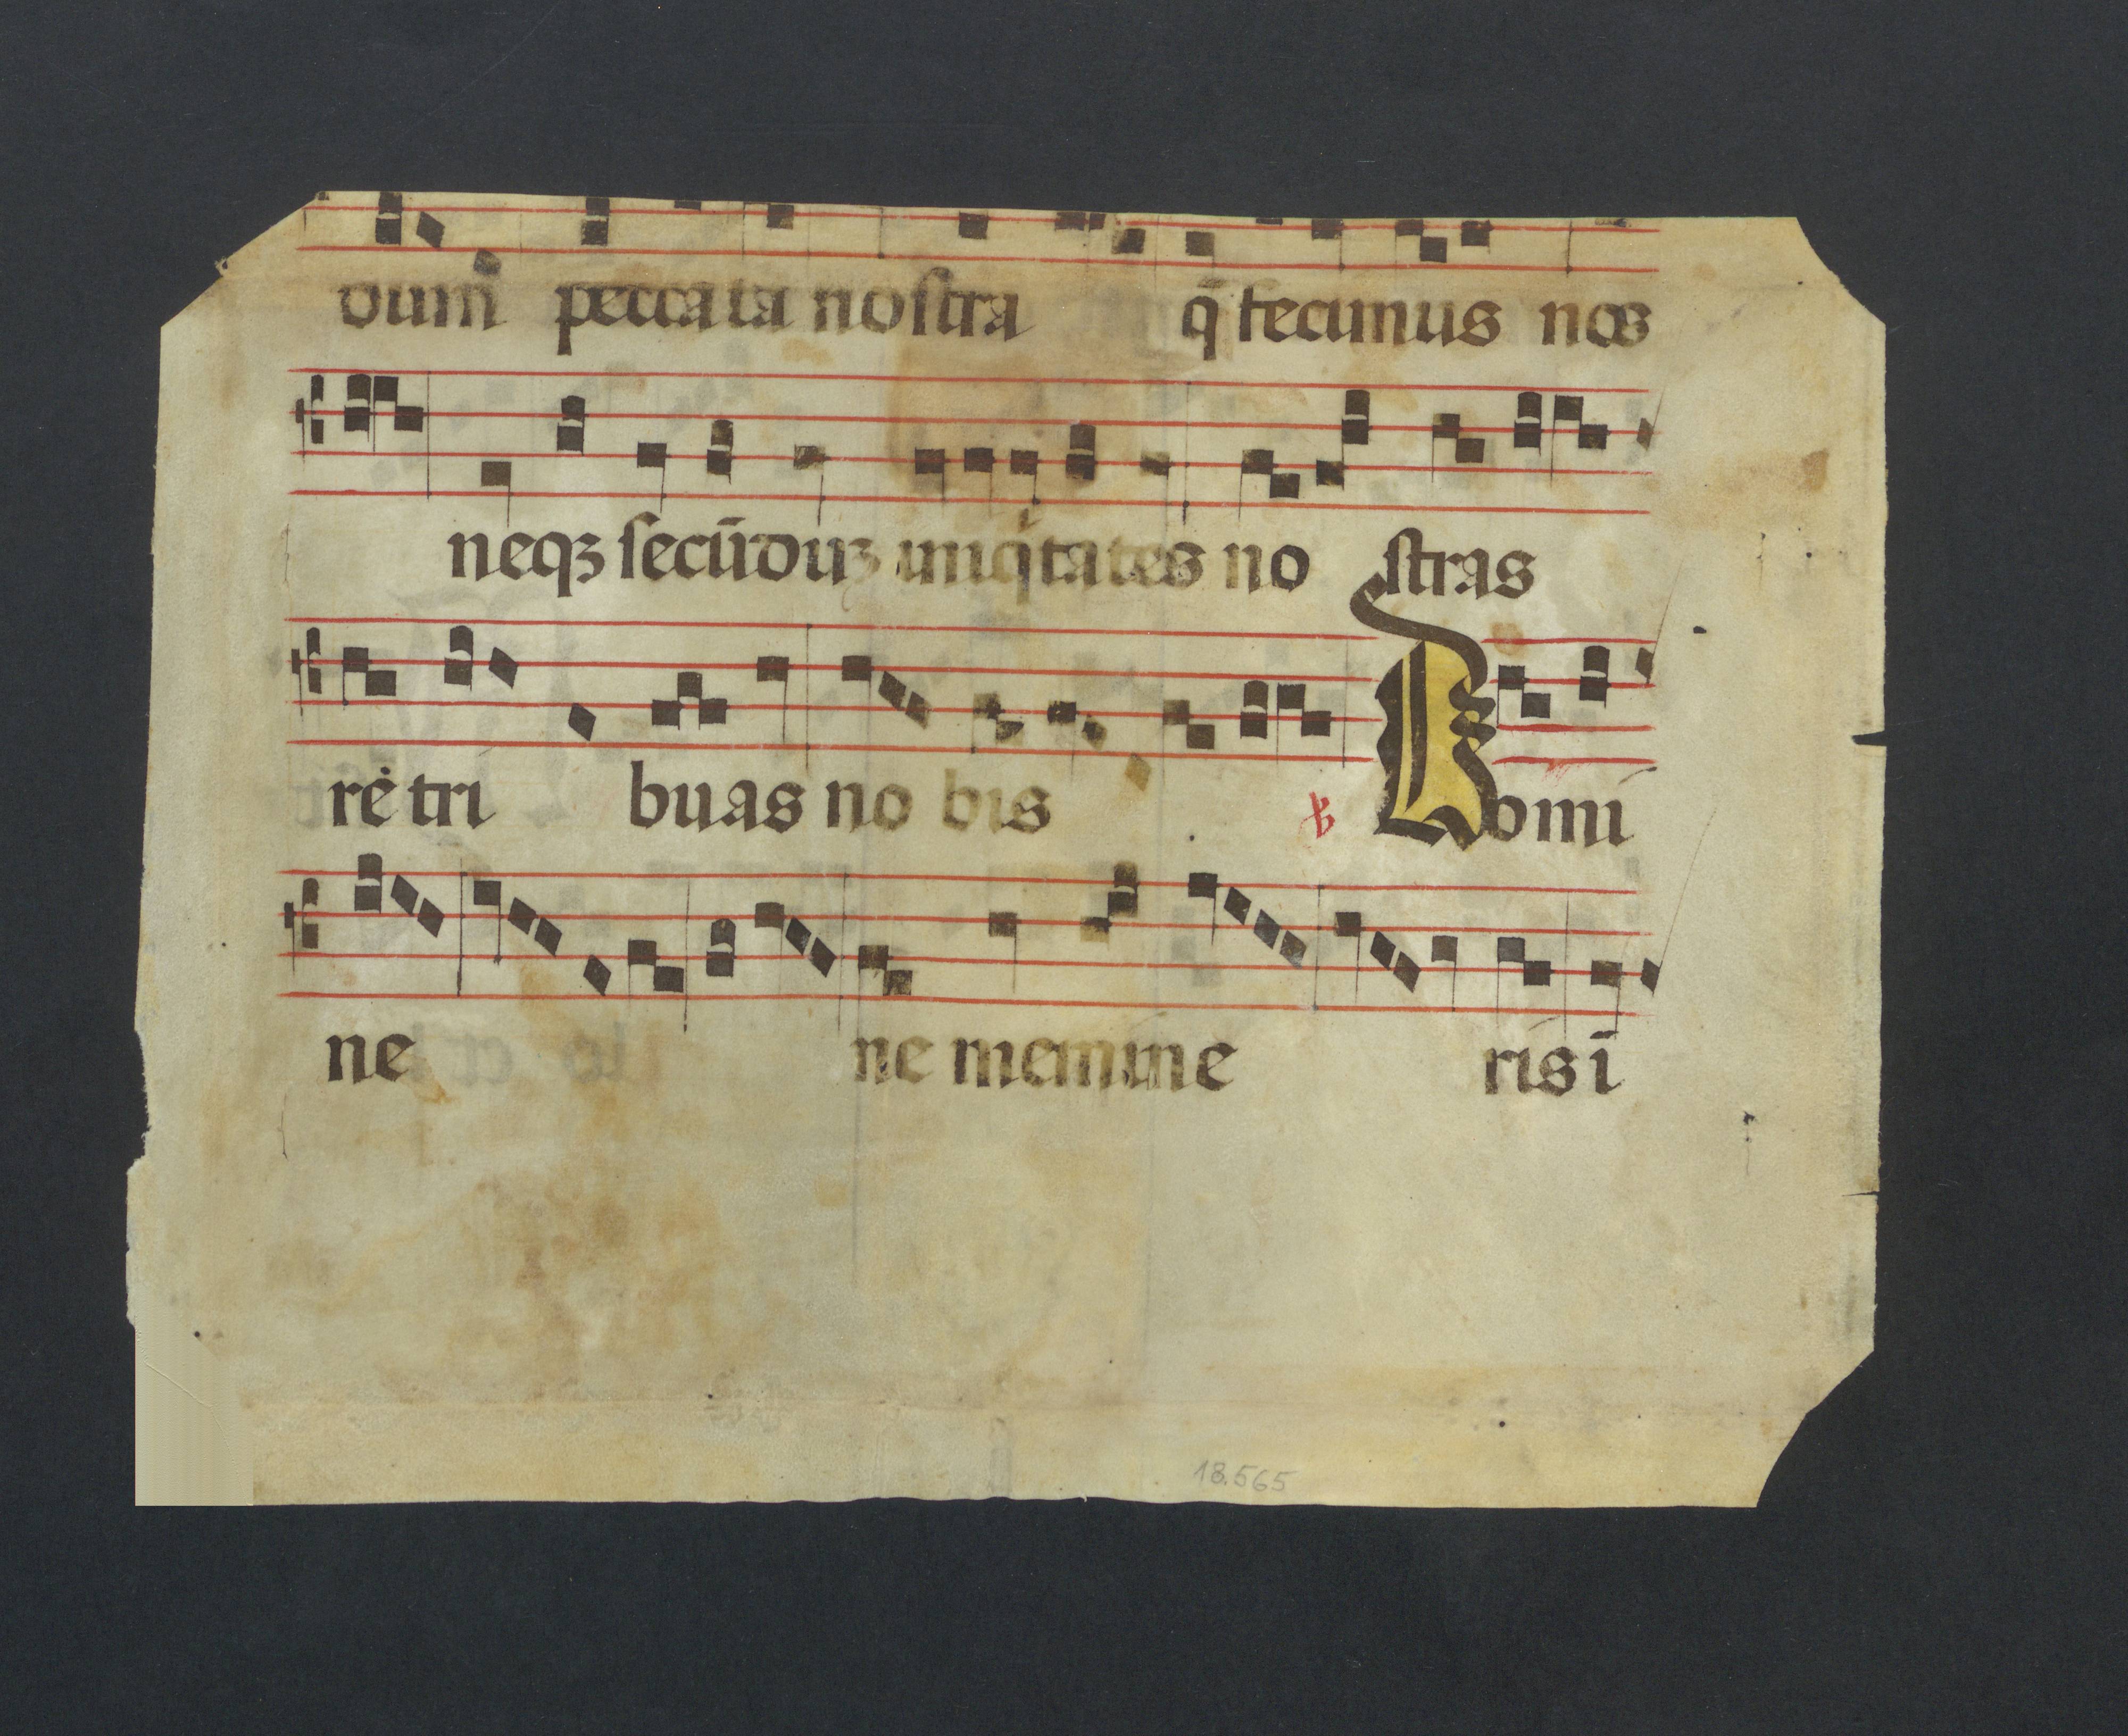 dum peccata nostra q̄ fecimus nos
neqꝫ secūduꝫ iniq̇tates no stras
re tri buas no bis ℣ Domi
ne ne memine ris ī
18.565